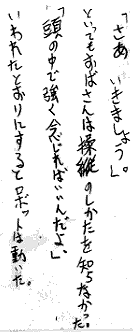 「さあ いきましょう」。
といってもおばさんは操縦のしかたを知らなかった。
「頭の中で強く念じればいいんだよ」、
いわれたとおりにするとロボットは動いた。